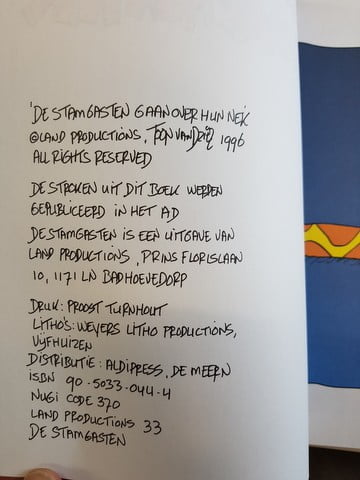 'DE STAMGASTEN GAAN OVER HUN NEK'
©LAND PRODUCTIONS, TOON VAN DRIEL 1996
ALL RIGHTS RESERVED
DE STROKEN UIT DIT BOEK WERDEN
GEPUBLICEERD IN HET AD
DE STAMGASTEN IS EEN UITGAVE VAN
LAND PRODUCTIONS, PRINS FLORISLAAN
10, 1171 LN BADHOEVEDORP
DRUK: PROOST TURNHOUT
LITHO'S: WEVERS LITHO PRODUCTIONS,
VIJFHUIZEN
DISTRIBUTIE: ALDIPRESS, DE MEERN
ISBN 90-5033-044-4
NUGI CODE 370
LAND PRODUCTIONS 33
DE STAMGASTEN